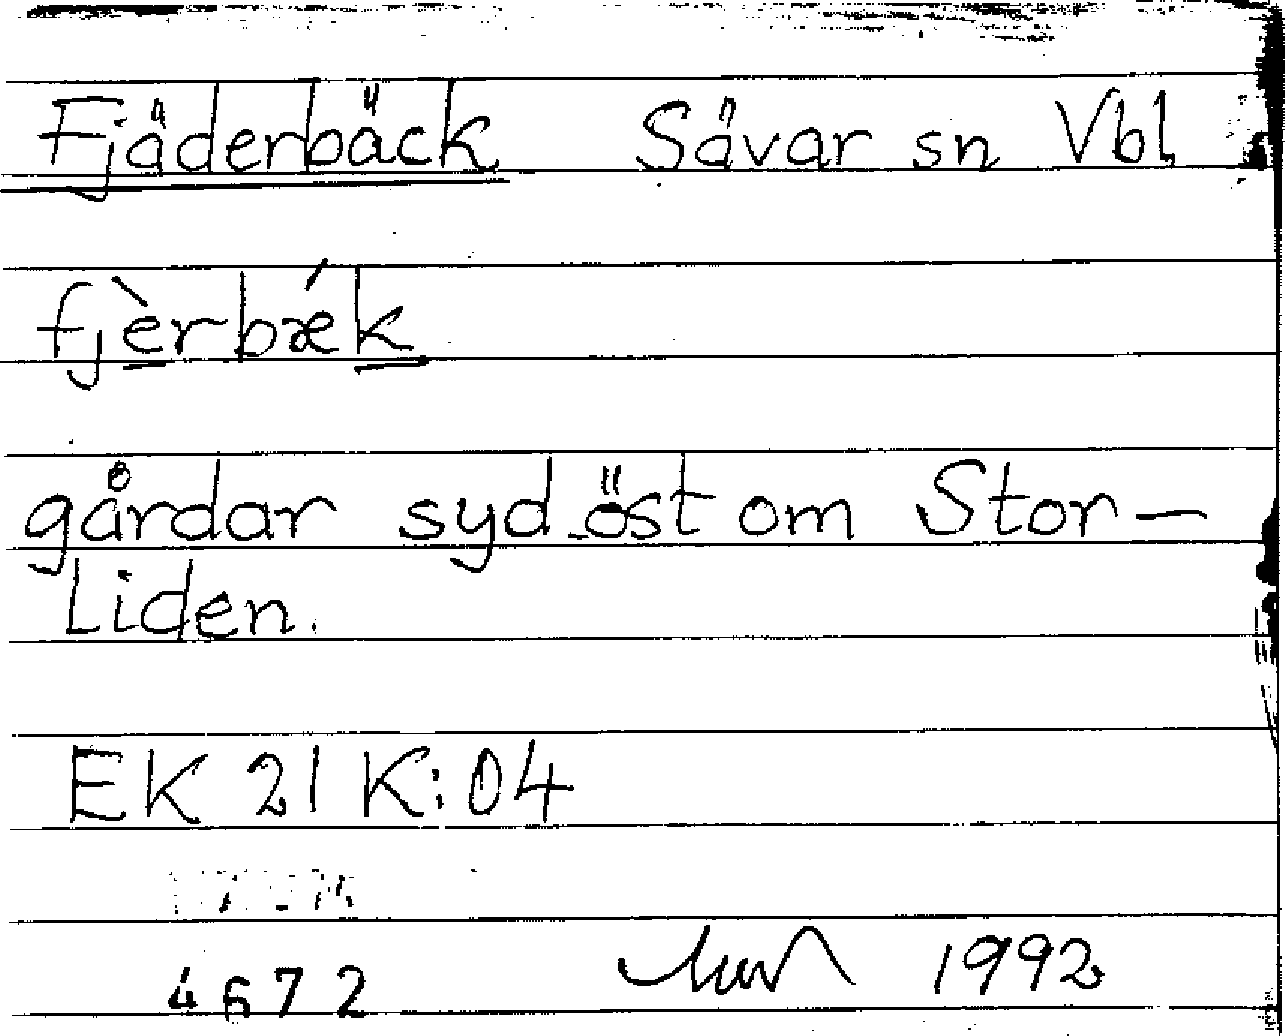 Fjäderbäck Sävar sn Vbl
fjèrbæ´k
gårdar sydöst om Stor-
Liden.
EK 21 K:04
4672 1992